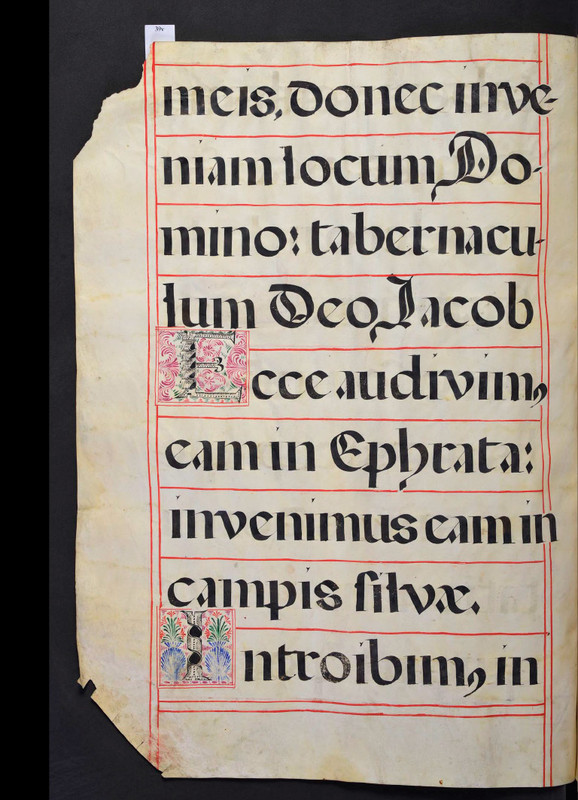 meis, donec inve-
niam locum Do-
mino: tabernacu-
lum Deo Jacob
Ecce audivim9
eam in Ephrata:
invenimus eam in
campis silvæ.
Introibim9 in